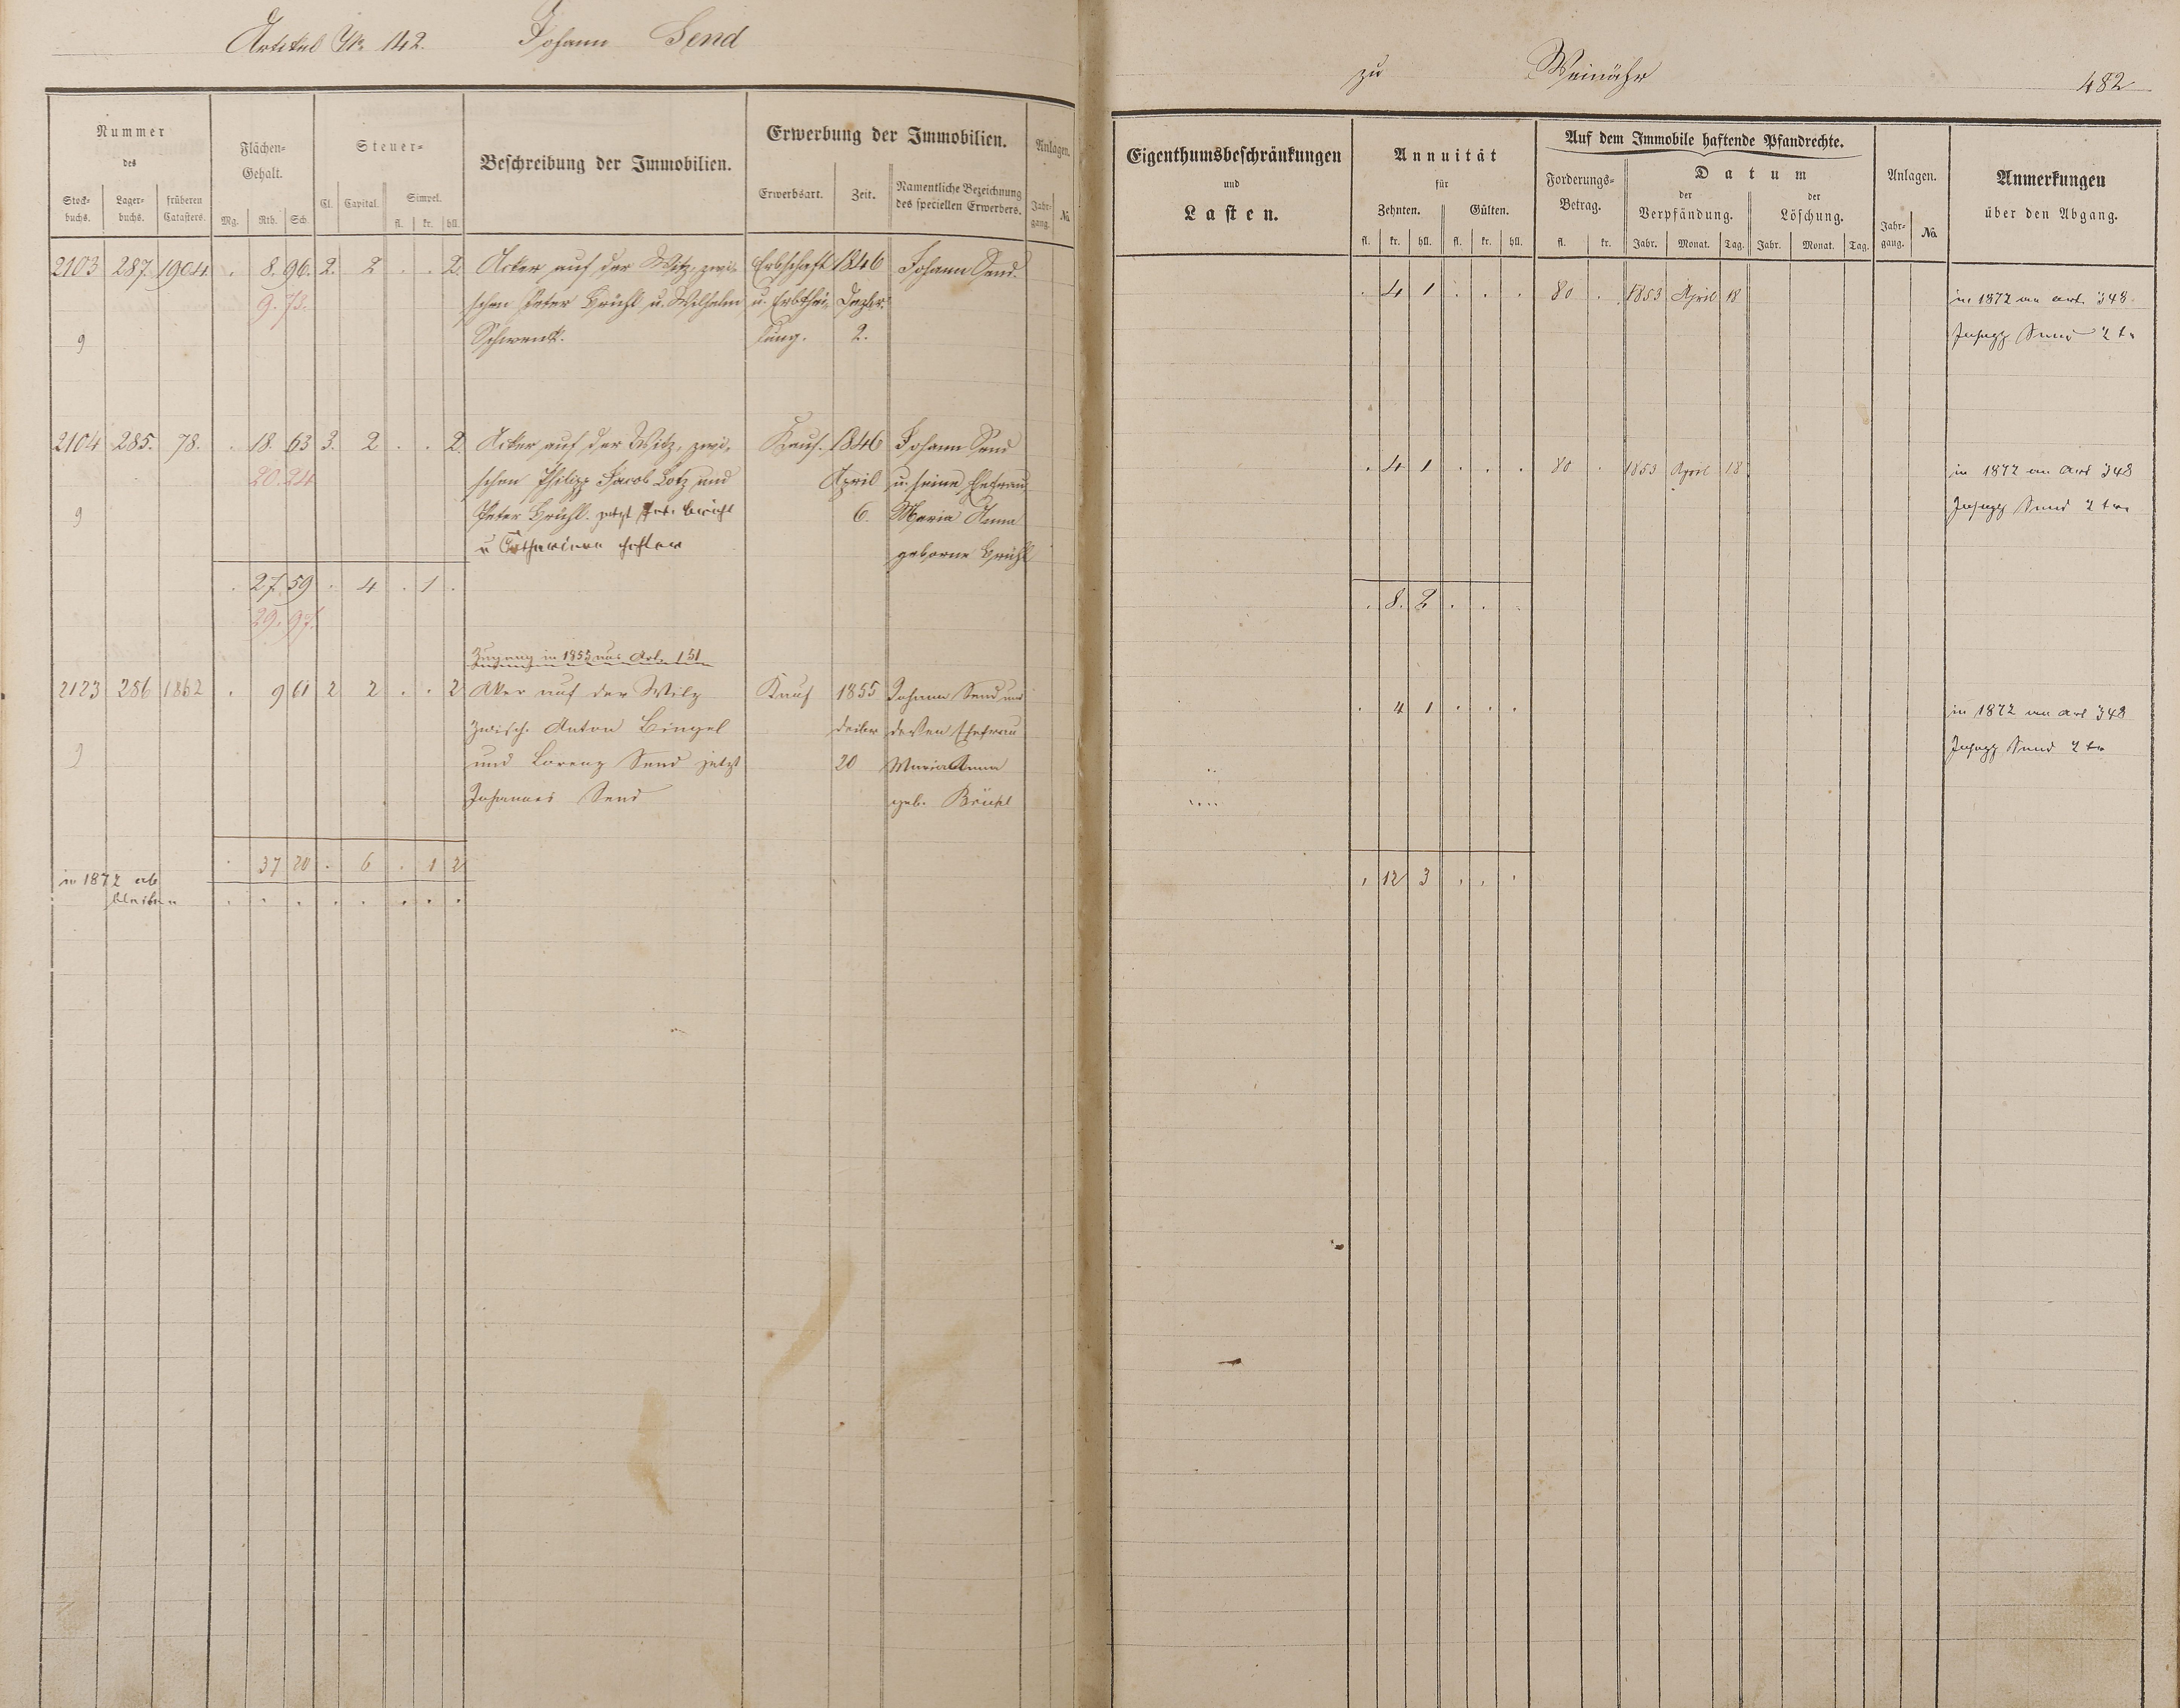 Artikel No. 142. Johann Send
zu Weinähr 482
Nummer
des
Stock-
buchs.
Lager-
buchs.
früheren
Catasters.
Flächen-
Gehalt.
Mg. Rth. Sch.
Steuer-
Cl. Capital. Simpel.
fl. kr. hll.
Beschreibung der Immobilien.
Erwerbung der Immobilien.
Erwerbsart. Zeit.
Namentliche Bezeichnung
des speciellen Erwerbers.
Anlagen.
Jahr-
gang.
No.
Eigenthumsbeschränkungen
und
Lasten.
Annuität
für
Zehnten. Gülten.
fl. kr. hll. fl. kr. hll.
Auf dem Immobile haftende Pfandrechte.
Forderungs-
Betrag.
fl. kr.
Datum
der
Verpfändung.
der
Löschung.
Jahr. Monat. Tag. Jahr. Monat. Tag.
Anlagen.
Jahr-
gang.
No.
Anmerkungen
über den Abgang.
2103 287. 1904. . 8. 96. 2. 2 . . 2. Acker auf der Witz, zwi- Erbschaft 1846 Johann Send.
9. 73. schen Peter Brühl u. Wilhelm u. Erbthei- Dezbr.
9 Schwenk. lung. 2.
. 4 1 . . . 80 . 1853 April 18 in 1872 an art. 348
Send
2104 285. 78. . 18. 63 3. 2 . . 2. Acker auf der Witz, zwi- Kauf. 1846 Johann Send
20. 24 schen Philipp Jacob Lotz und April u. seine Ehefrau
9 Peter Brühl. jetzt Brühl 6. Maria Anna
u Catharina geborne Brühl
. 4 1 . . . 80 . 1853 April 18 in 1872 an Art 348
Send
. 27. 59 . 4 . 1 . . 8. 2 . . .
29. 97.
Zugang in 1855 aus Art. 151
2123 286 1862 . 9 61 2 2 . . 2 Aker auf der Witz Kauf 1855 Johann Send und
zwisch. Anton Bingel dessen Ehefrau
9 und Lorenz Send jetzt 20 Maria Anna
Johannes Send geb. Brühl
. 4 1 . . . in 1872 an art 348
Send
. 37 20 . 6 . 1 2 . 12 3 . . .
in 1872 ab
bleiben . . . . . . . .